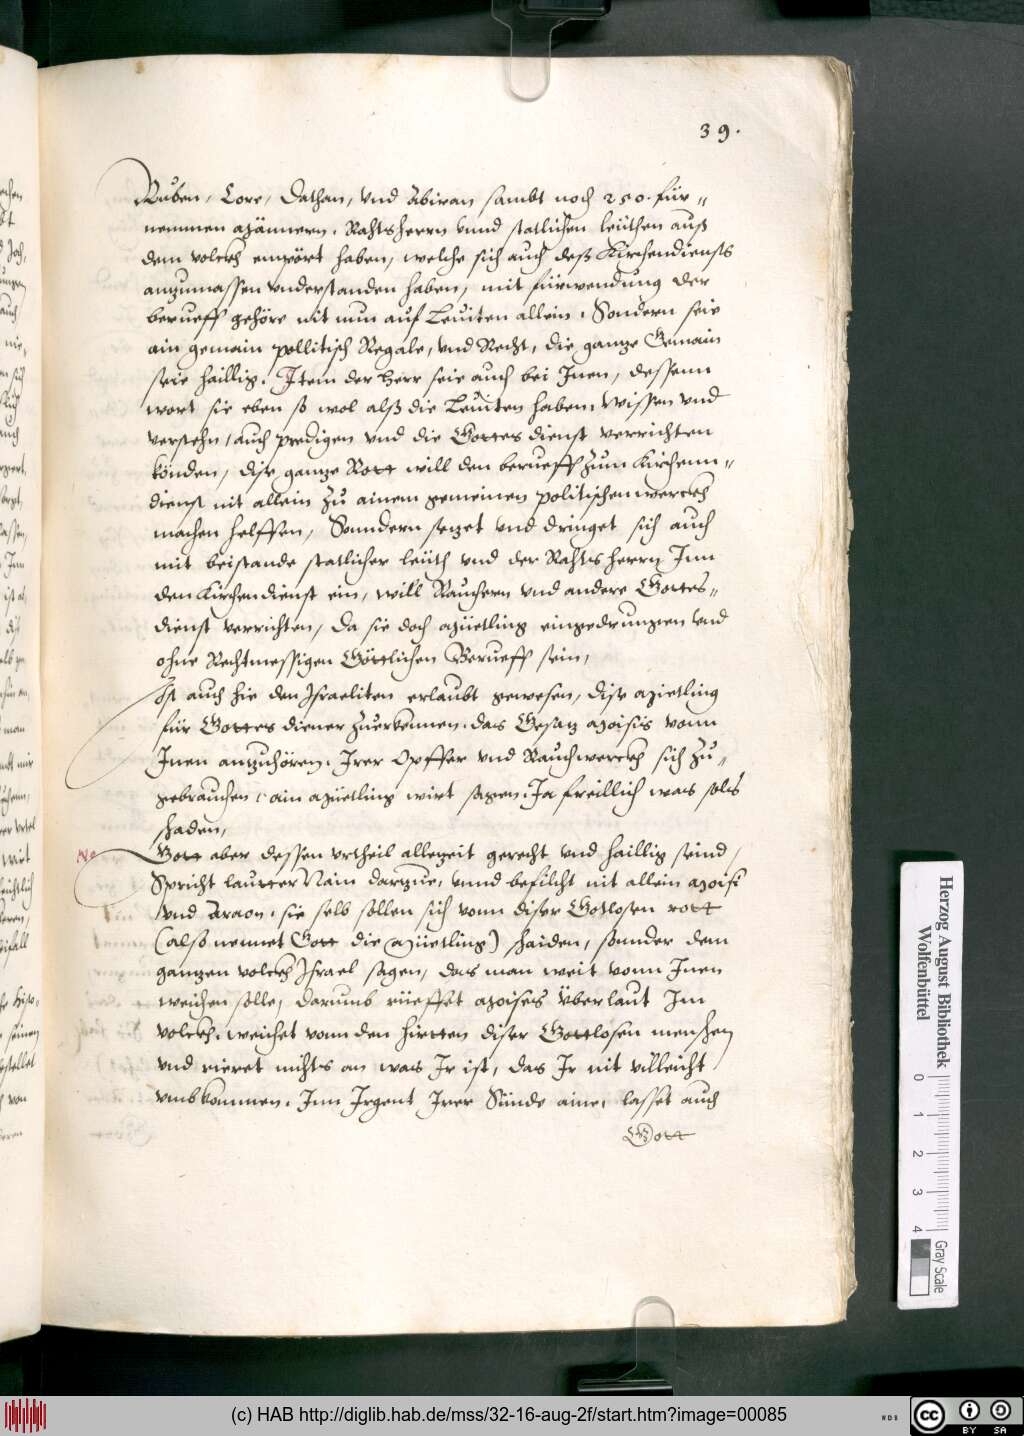 39.
Ruben, Core, Dathan, vnd Abiran sambt noch 250. für=
nemmen Männern. Rahtsherrn vnnd statlichen leüthen auß
dem volckh empört haben, welche sich auch deß Kirchendiensts
anzumassen vnderstanden haben, mit fürwendung der
berueff gehöre nit nun auf Leuiten allein. Sondern seie
ain gemain pollitisch Regale, vnd Recht, die gantze Gemain
seie haillig. Item der Herr seie auch bei Inen, dessenn
wort sie eben so wol alß die Leuiten haben. Wissen vnd
verstehn, auch predigen vnd die Gottes dienst verrichten
könden, dise gantze Rott will den berueff zum Kirchenn=
dienst nit allein zu ainem gemeinen politischen werckh
machen helffen, Sonndern setzet vnd dringet sich auch
mit beistande statlicher leüth vnd der Rahtsherrn Inn
den Kirchendienst ein, will Rauchern vnd andere Gottes=
dienst verrichten, da sie doch Müetling eingedrungen vnd
ohne Rechtmessigen Göttlichen Berueff sein,
Ist auch hie den Israeliten erlaubt gewesen, dise Mietling
für Gottes diener zuerkennen. das Gesatz Moisis vonn
Inen antzuhören. Irer Opffer vnd Rauchwerckh sich zu=
gebrauchen, ain Müetling wirt sagen. Ja freillich was solts
schaden,
Gott aber dessen vrtheil allezeit gerecht vnd haillig seind,
Spricht lautter Nain dartzue, vnnd befilcht nit allein Moisi
vnd Araon. sie selb sollen sich vonn diser Gotlosen rott
(also nennet Gott die Müetling) shaiden, sonder dem
gantzen volckh Israel sagen, das man weit vonn Inen
weichen solle, darumb rüeffet Moises Überlaut Im
volckh. weichet vonn den hietten diser Gottlosen menshen
vnd rieret nichts an was Ir ist, das Ir nit villeicht
vmbkommen. Inn Irgent Irer Sünde aine, lasset auch
Gott
Herzog August Bibliothek
Wolfenbüttel
0 1 2 3 4
Gray Scale
(c) HAB http://diglib.hab.de/mss/32-16-aug-2f/start.htm?image=00085
WDB
cc
BY SA